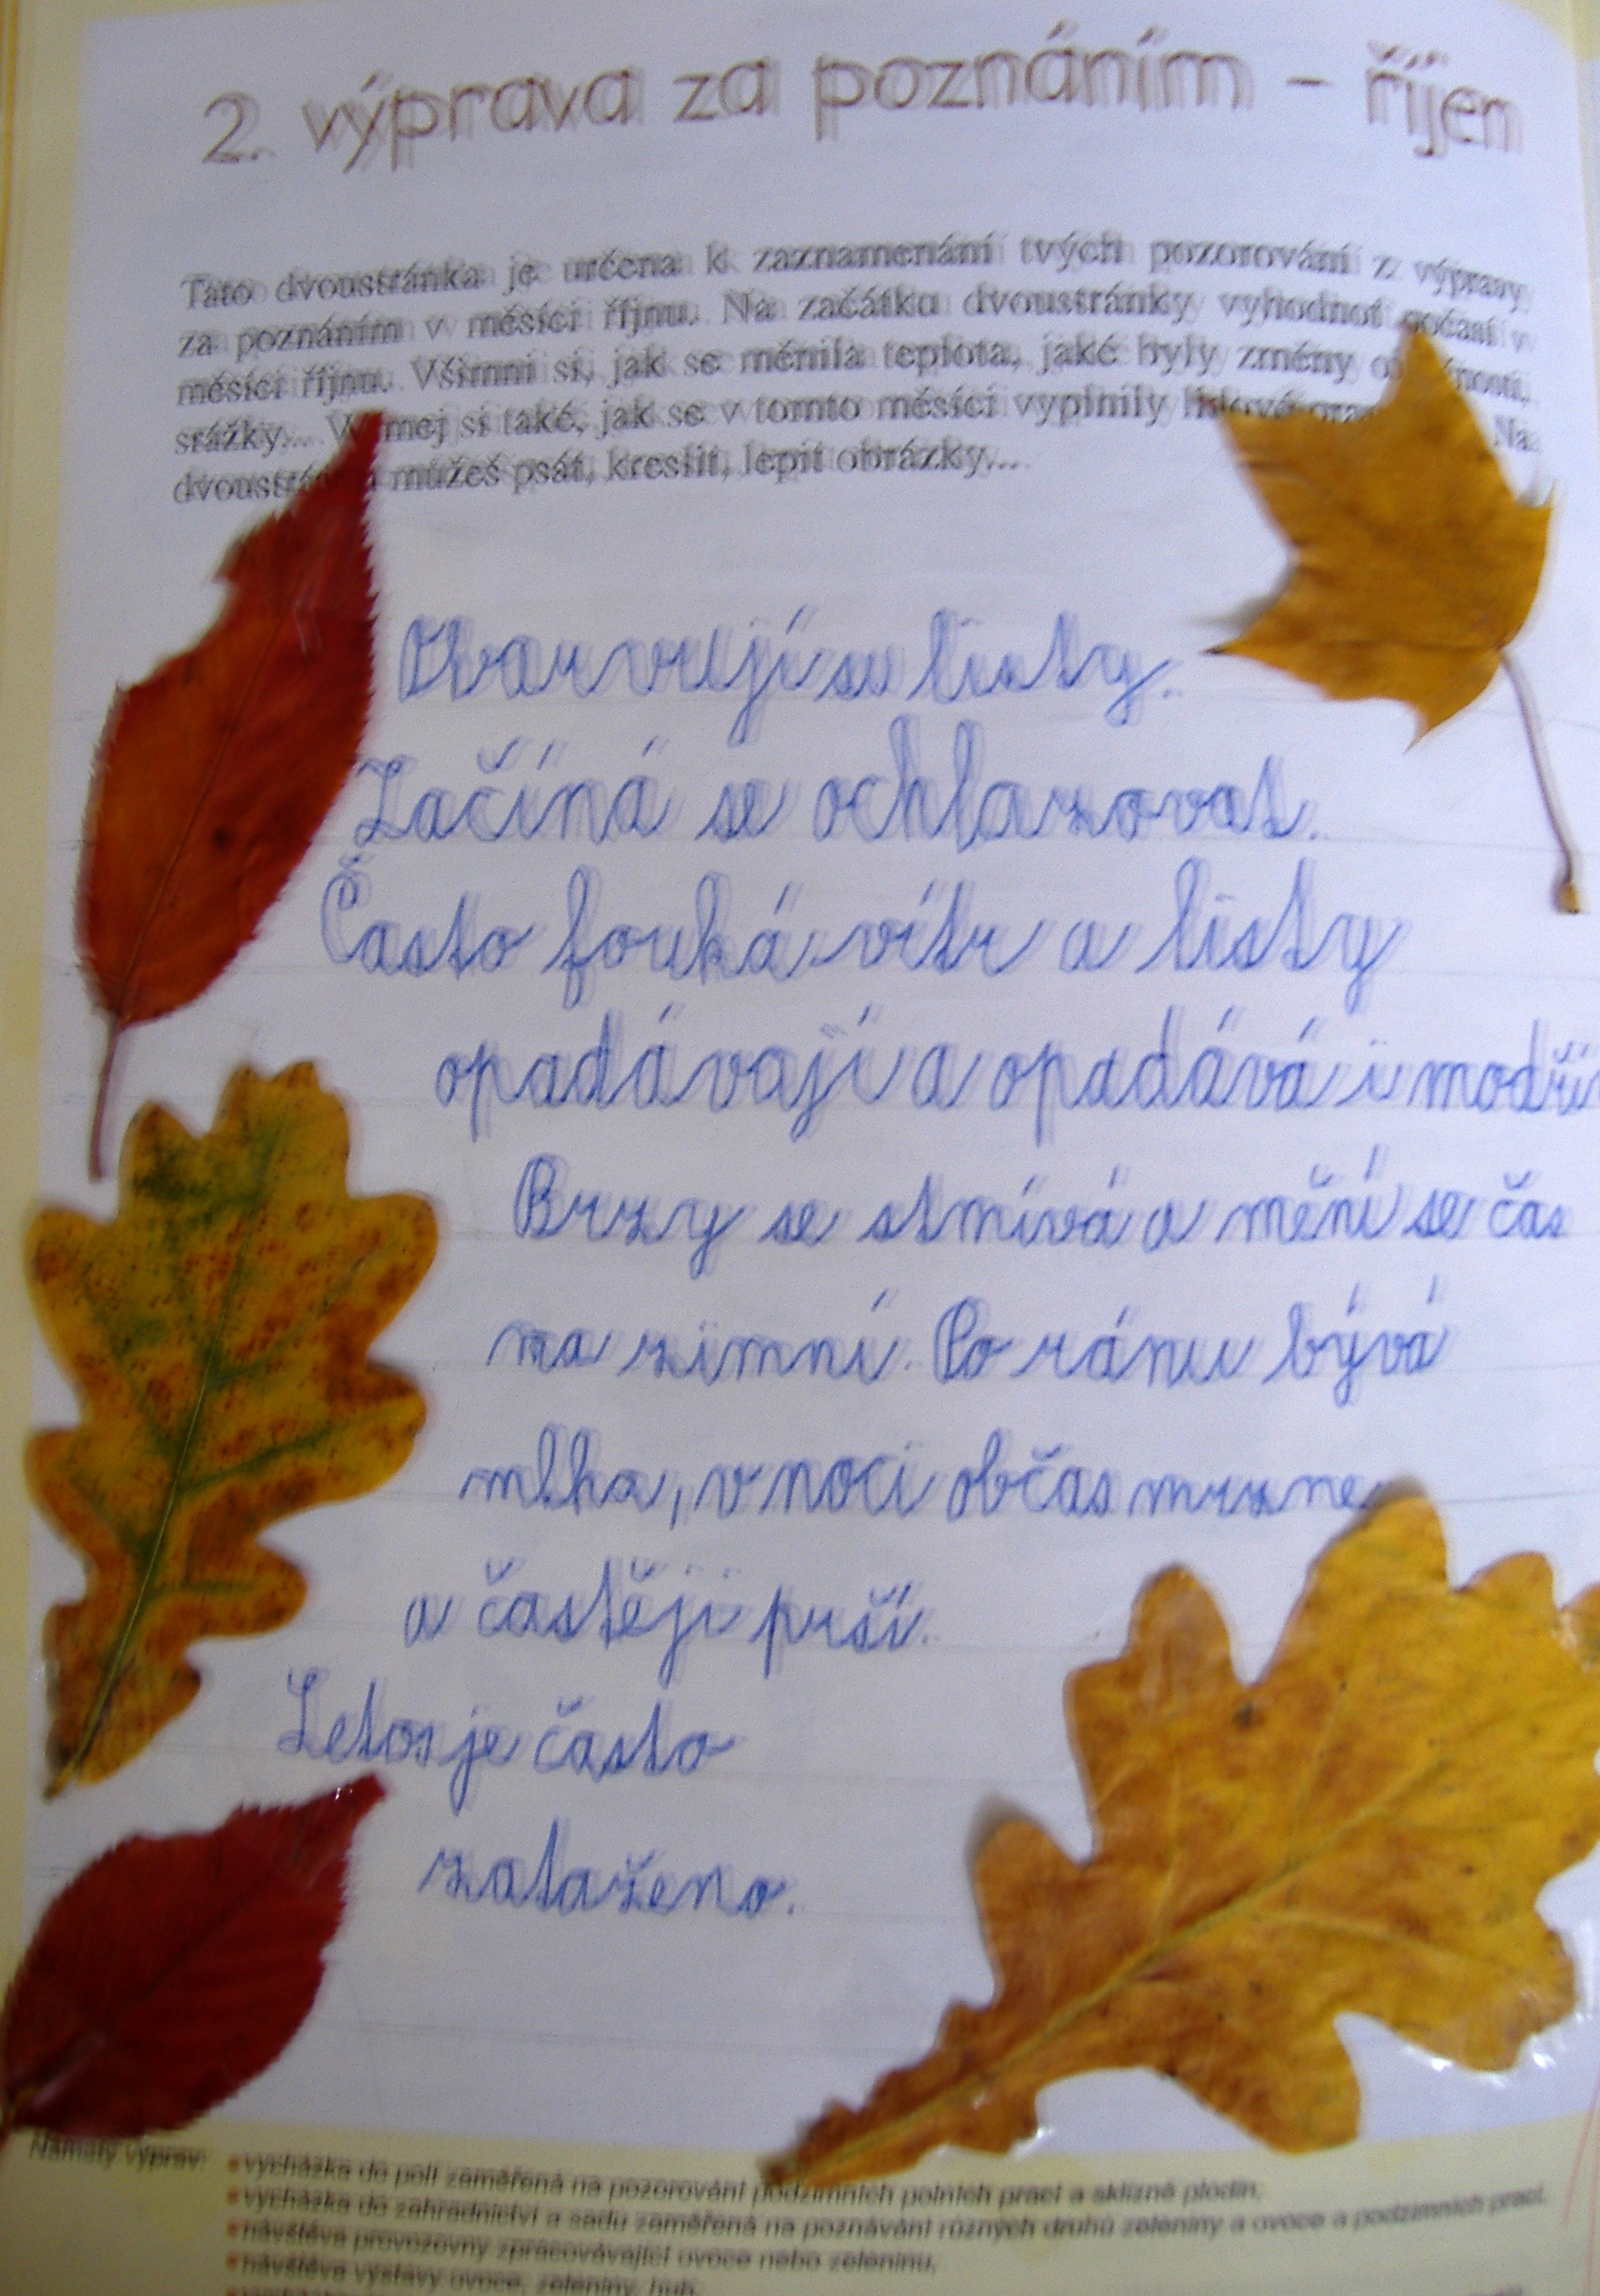 2. výprava za poznáním - říjen
Tato dvoustránka je určena k zaznamenání tvých pozorování z výpravy
za poznáním v měsíci říjnu. Na začátku dvoustránky vyhodnoť počasí v
měsíci říjnu. Všimni si, jak se měnila teplota, jaké byly změny
srážky... si také, jak se v tomto měsíci vyplnily lidové Na
můžeš psát, kreslit, lepit obrázky...
Obarvují se listy.
Začíná se ochlazovat.
Často fouká vítr a listy
opadávají a opadává i modří
Brzy se stmívá a mění se čas
na zimní. Po ránu bývá
mlha, v noci občas mrzne
a častěji prší.
Letos je často
zataženo.
Náměty výprav:
vycházka do polí zaměřená na pozorování podzimních polních prací a sklizně plodin,
vycházka do zahradnictví a sadu zaměřená na poznávání různých druhů zeleniny a ovoce a podzimních prací,
návštěva provozovny zpracovávající ovoce nebo zeleninu,
návštěva výstavy ovoce, zeleniny, hub,